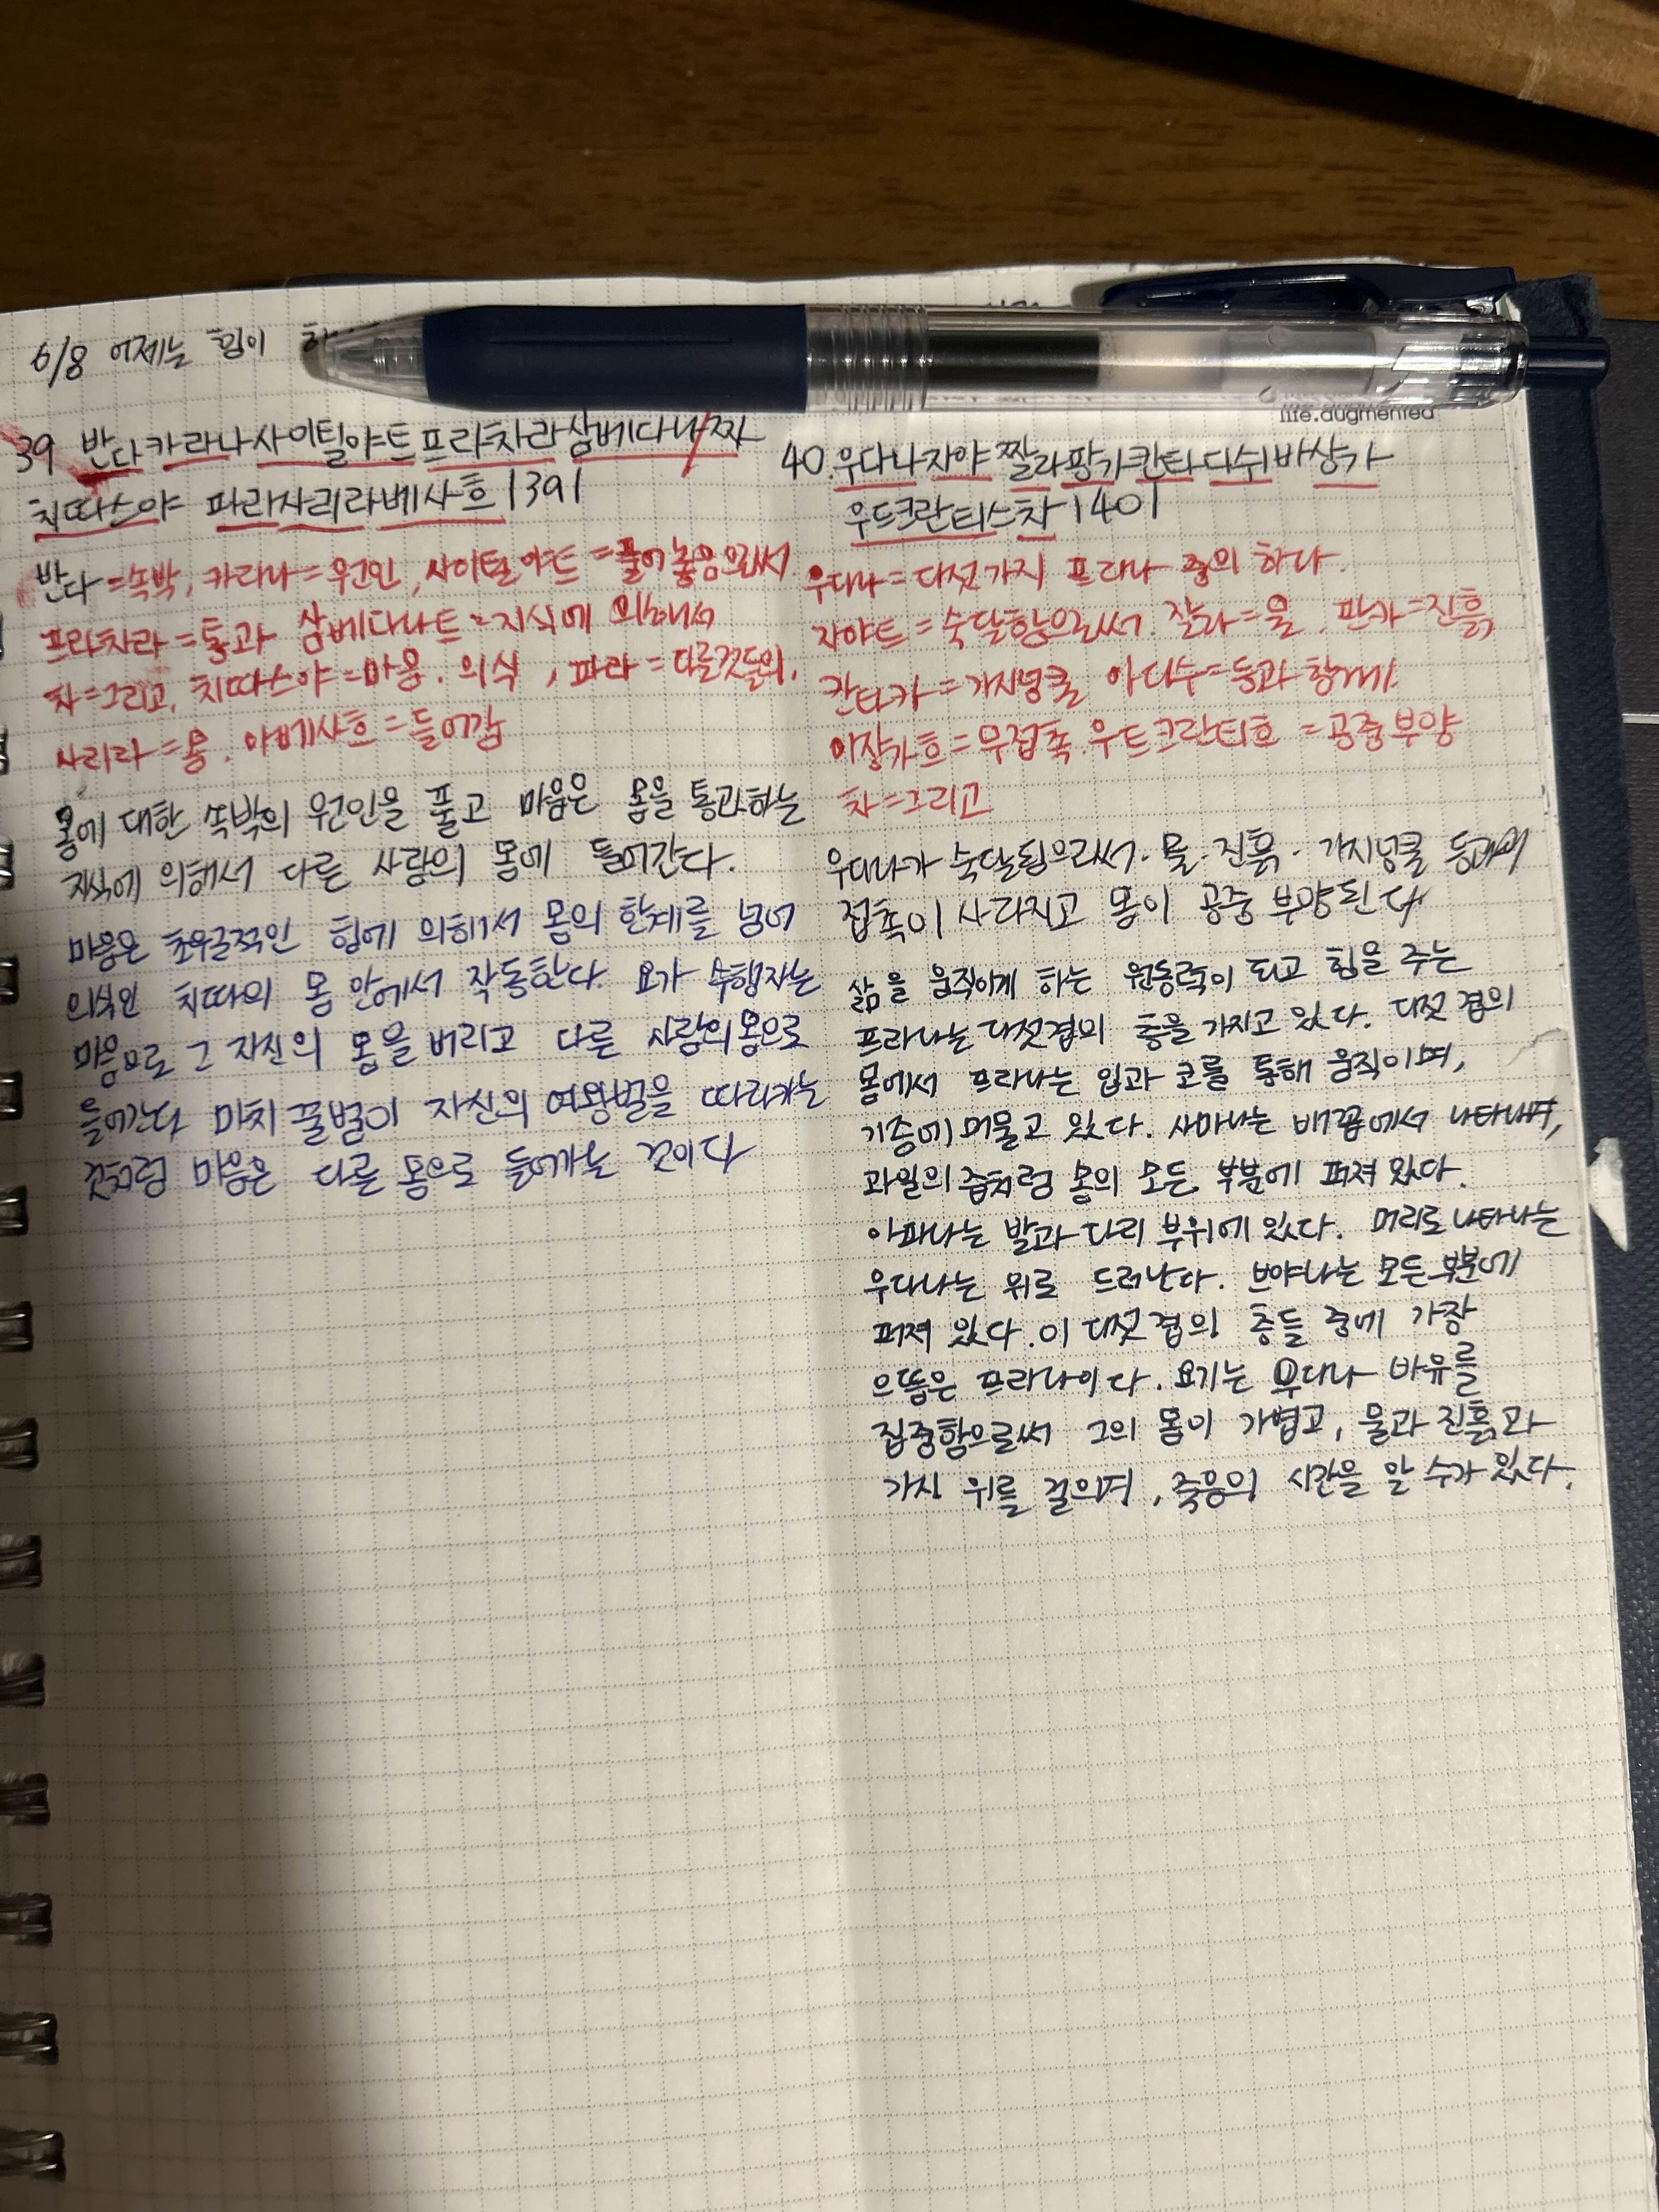 6/8 어제는 힘이
life.augmented
39 반다카라나사이틸야트프라차라삼베다나짜
치따스야 파라사리라베사흐 |39|
반다=속박, 카라나=원인, 사이틸야트=풀어놓음으로써
프라차라=통과 삼베다나트=지식에 의해서
차=그리고, 치따스야=마음. 의식, 파라=다른것들의,
사리라=몸. 아베사흐=들어감
몸에 대한 속박의 원인을 풀고 마음은 몸을 통과하는
지식에 의해서 다른 사람의 몸에 들어간다.
마음은 초월적인 힘에 의해서 몸의 한계를 넘어
의식인 치따의 몸 안에서 작동한다. 요가 수행자는
마음으로 그 자신의 몸을 버리고 다른 사람의 몸으로
들어간다 마치 꿀벌이 자신의 여왕벌을 따라가는
것처럼 마음은 다른 몸으로 들어가는 것이다
40. 우다나자야짤라팡카칸타디쉬바상가
우드크란티스차 |40|
우다나=다섯가지 프라나 중의 하다.
자야트=숙달함으로써. 잘라=물. 판카=진흙,
칸타카=가시넝쿨 아디수=등과 함께.
아장가흐=무접촉. 우트크란티흐=공중부양
차=그리고
우다나가 숙달됨으로써. 물. 진흙. 가시넝쿨
접촉이 사라지고 몸이 공중 부양된다
삶을 움직이게 하는 원동력이 되고 힘을 주는
프라나는 다섯겹의 층을 가지고 있다. 다섯 겹의
몸에서 프라나는 입과 코를 통해 움직이며,
가슴에 머물고 있다. 사마나는 배꼽에서 나타내며,
과일의 즙처럼 몸의 모든 부분에 퍼져 있다.
아파나는 발과 다리 부위에 있다. 머리로 나타나는
우다나는 위로 드러난다. 브야나는 모든 부분에
퍼져 있다. 이 다섯 겹의 층들 중에 가장
으뜸은 프라나이다. 요기는 우다나 바유를
집중함으로써 그의 몸이 가볍고, 물과 진흙과
가시 위를 걸으며, 죽음의 시간을 알 수가 있다.